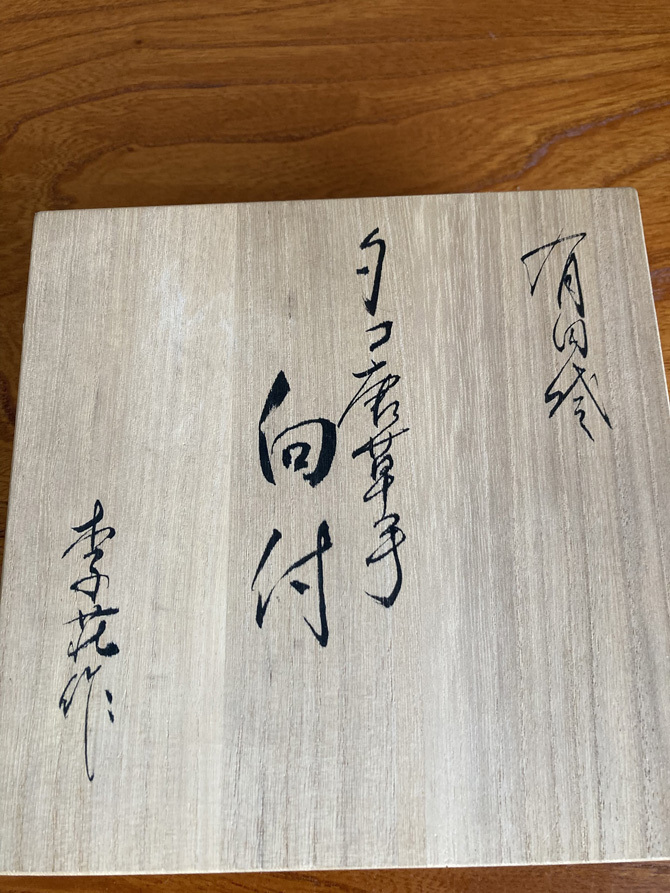 有田焼
タコ唐草手
向付
李荘作